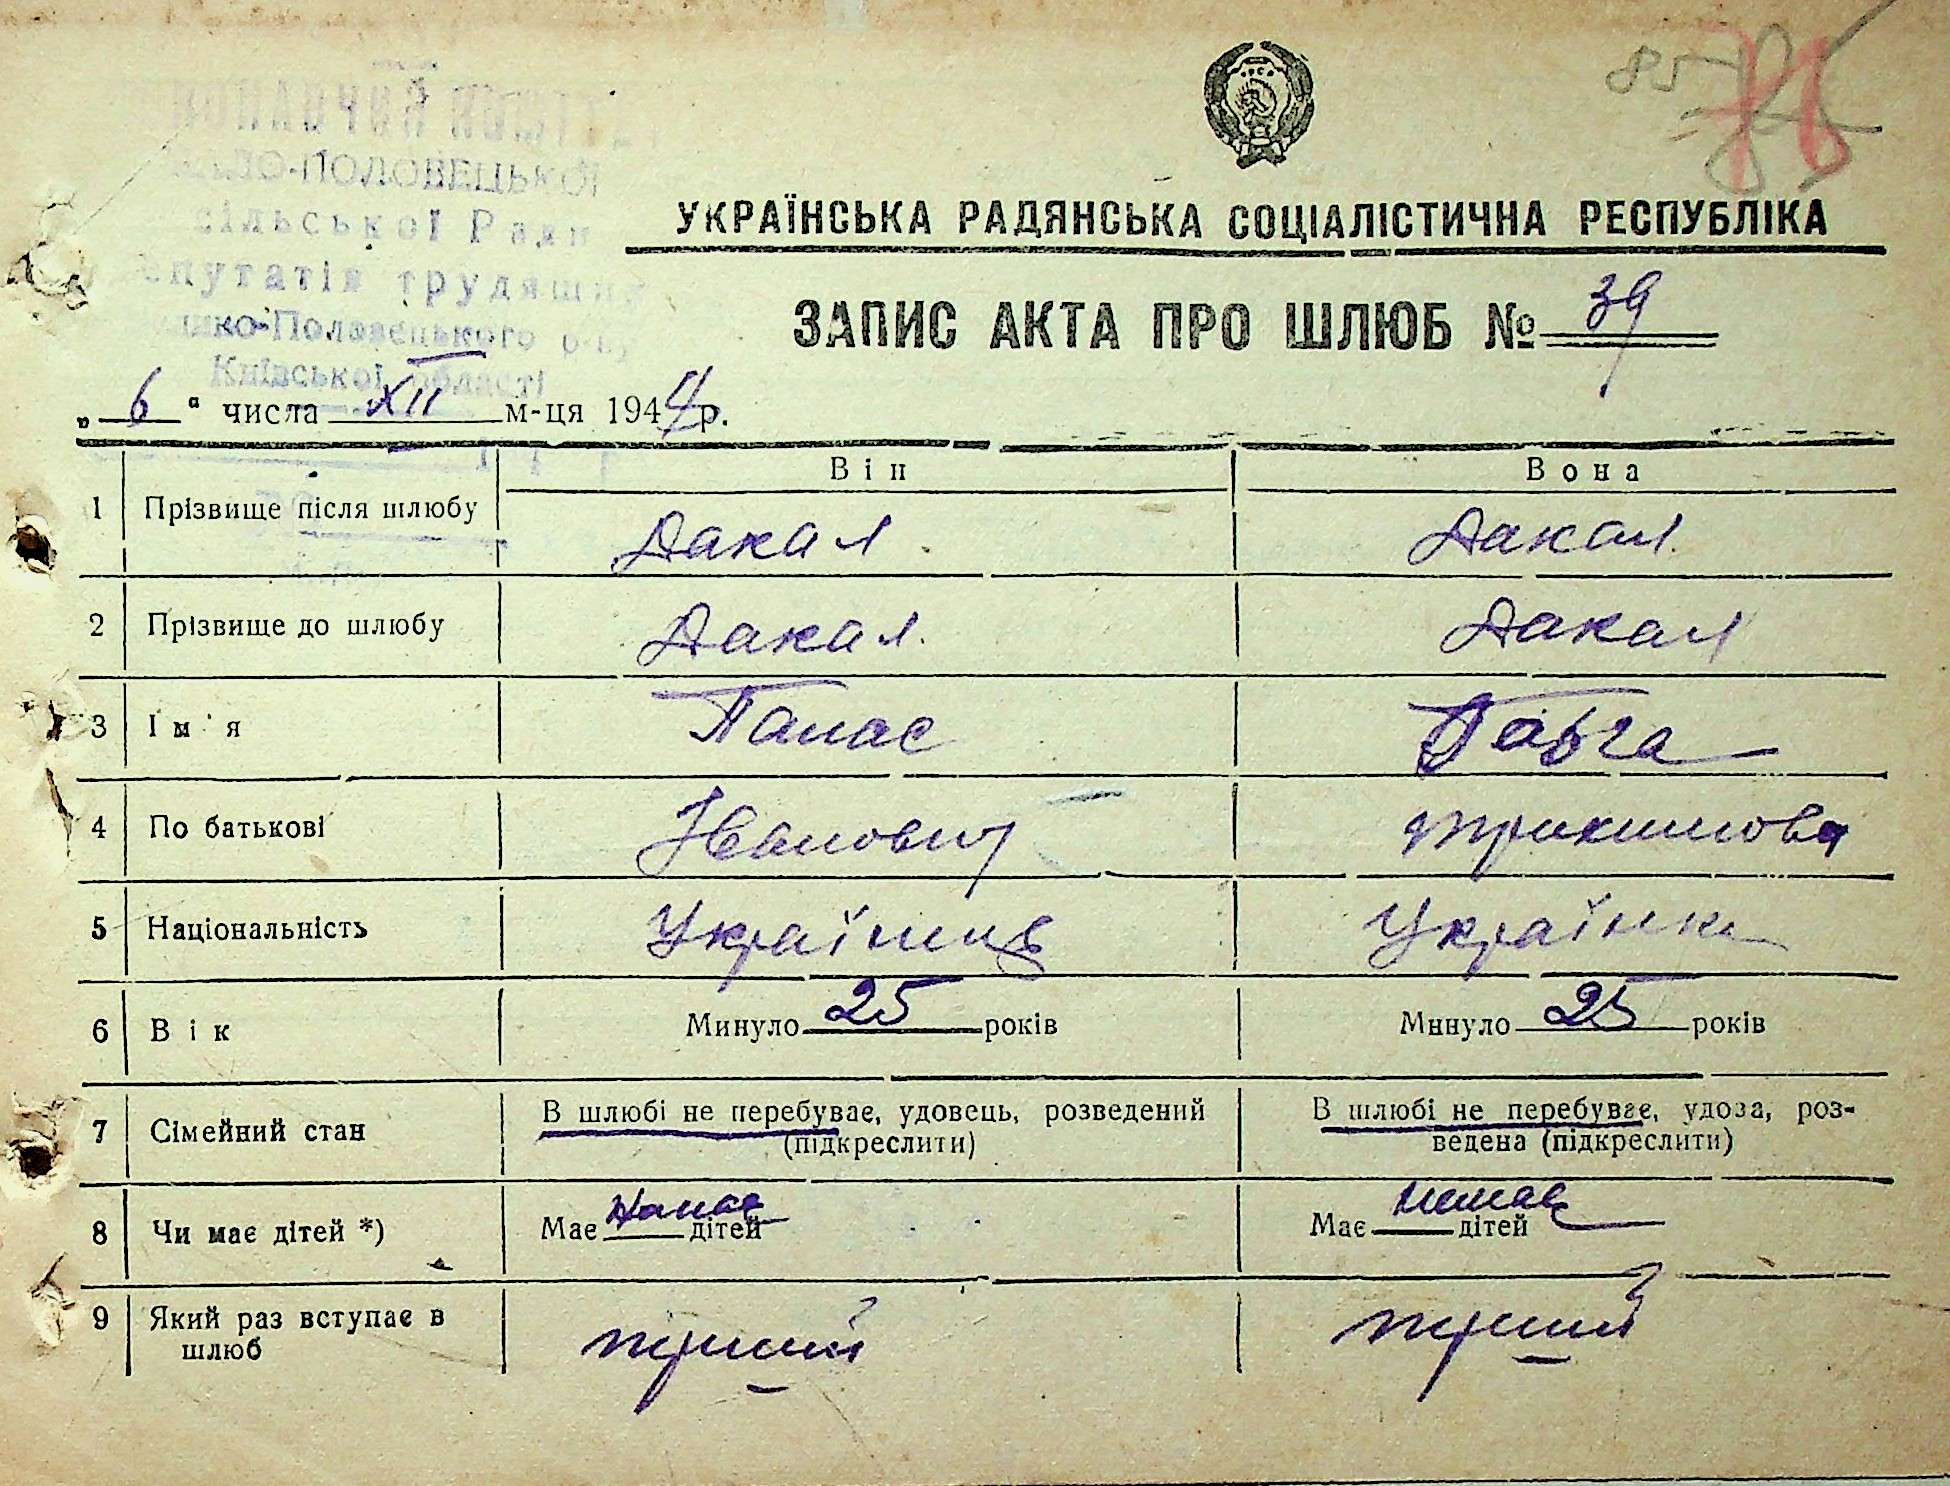 85
76
УКРАЇНСЬКА РАДЯНСЬКА СОЦІАЛІСТИЧНА РЕСПУБЛІКА
ПОЛОВЕЦЬКОЇ
сільської Ради
трудящих
Половецького р-ну
Київської області
ЗАПИС АКТА ПРО ШЛЮБ № 39
„ 6 " числа XII м-ця 1944 р.
Він Вона
1 Прізвище після шлюбу Дакал Дакал
2 Прізвище до шлюбу Дакал Дакал
3 Ім'я Панас
4 По батькові Іванович
5 Національність Українець Українка
6 Вік Минуло 25 років Минуло 25 років
7 Сімейний стан В шлюбі не перебуває, удовець, розведений (підкреслити) В шлюбі не перебуває, удова, роз-
ведена (підкреслити)
8 Чи має дітей *) Має немає дітей Має немає дітей
9 Який раз вступає в
шлюб перший перший